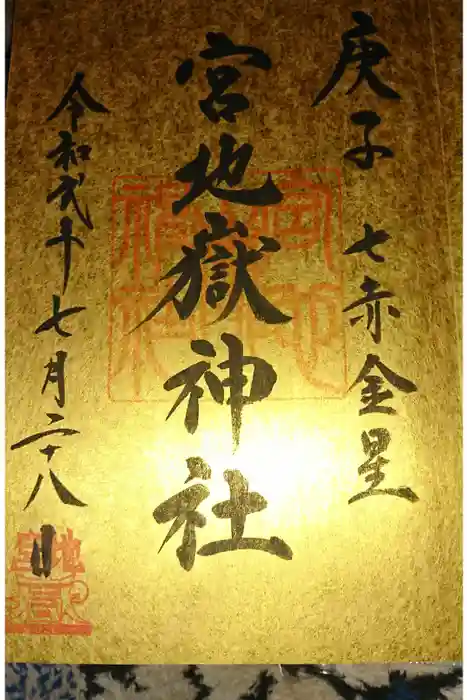 庚子 七赤金星
宮地嶽神社
令和弐年七月二十八日